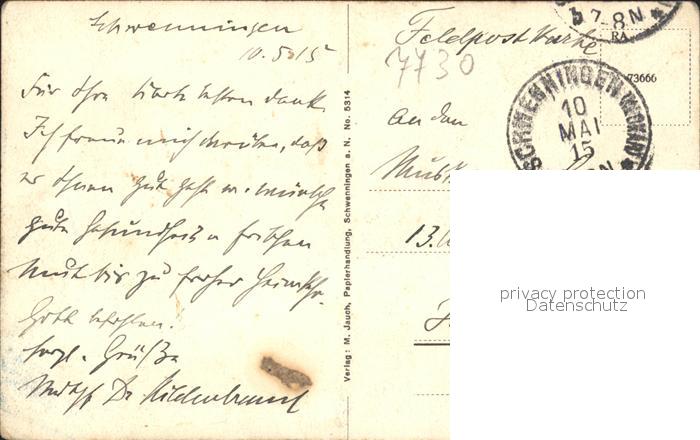 Schwenningen
10.5.15
Für Ihre Karte besten Dank.
Ich freue mich darüber, daß
es Ihnen gut geht u. wünsche
gute Gesundheit u frischen
Mut bis zu froher Heimkehr.
Gott befohlen!
herzl. Grüße
Dr Hildenbrand
Verlag: M. Jauch, Papierhandlung, Schwenningen a. N. No. 5314
Feldpostkarte
7730
An den
Musk
13.
7-8N
RA
73666
SCHWENNINGEN (NECKAR)
10
MAI
15
N
privacy protection
Datenschutz